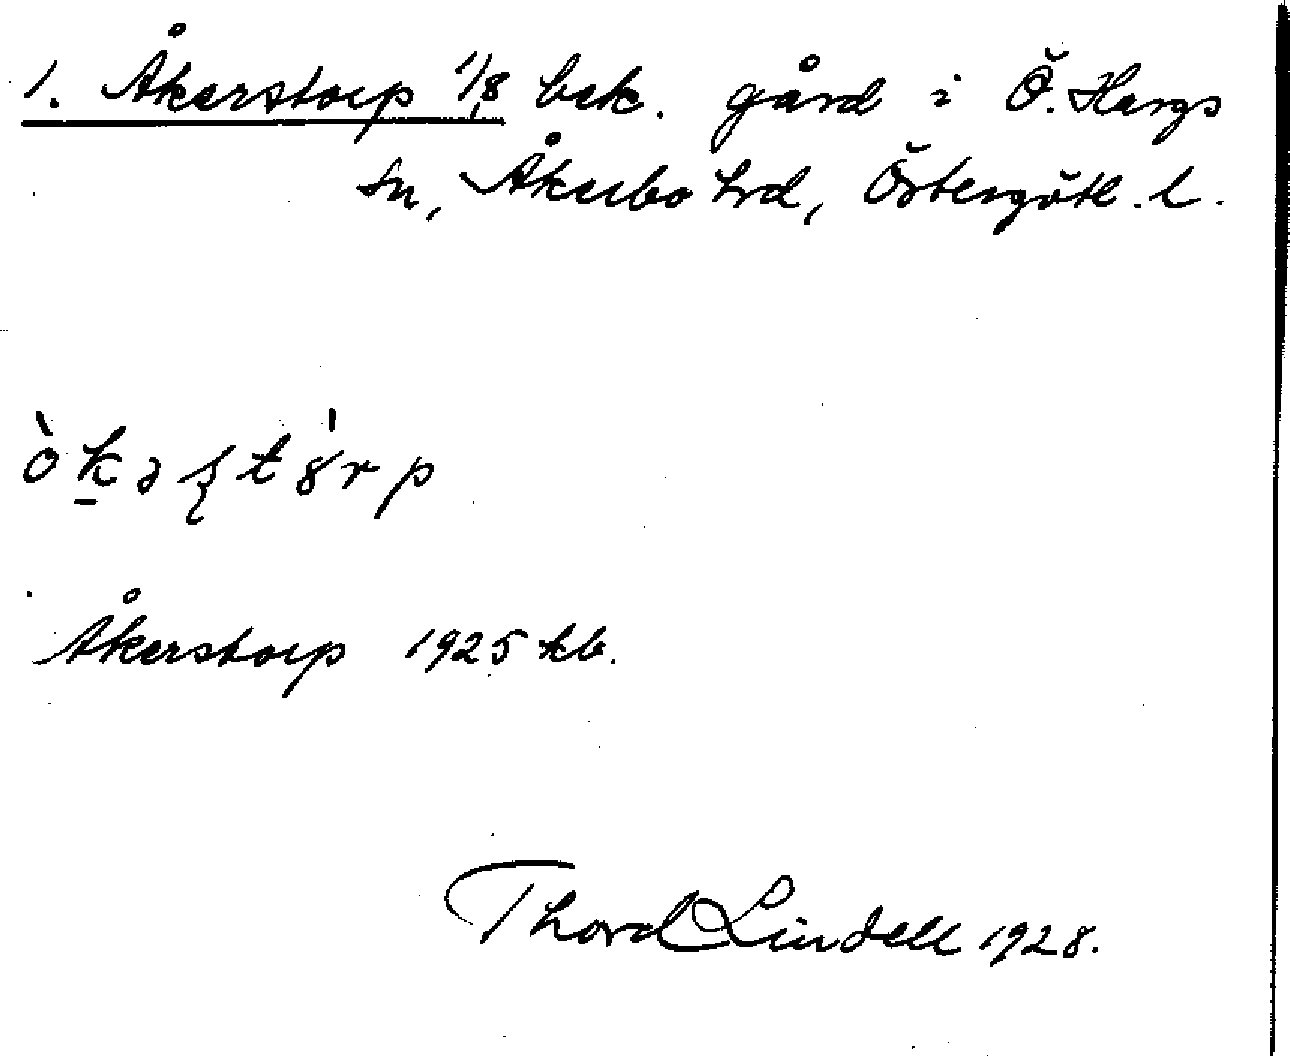 1. Åkerstorp 1/8 bek. gård i Ö. Hargs
sn, Åkerbo hrd, Östergötl. l.
òk̠əʂtȣ́rp
Åkerstorp 1925 kb.
Thord Lindell 1928.